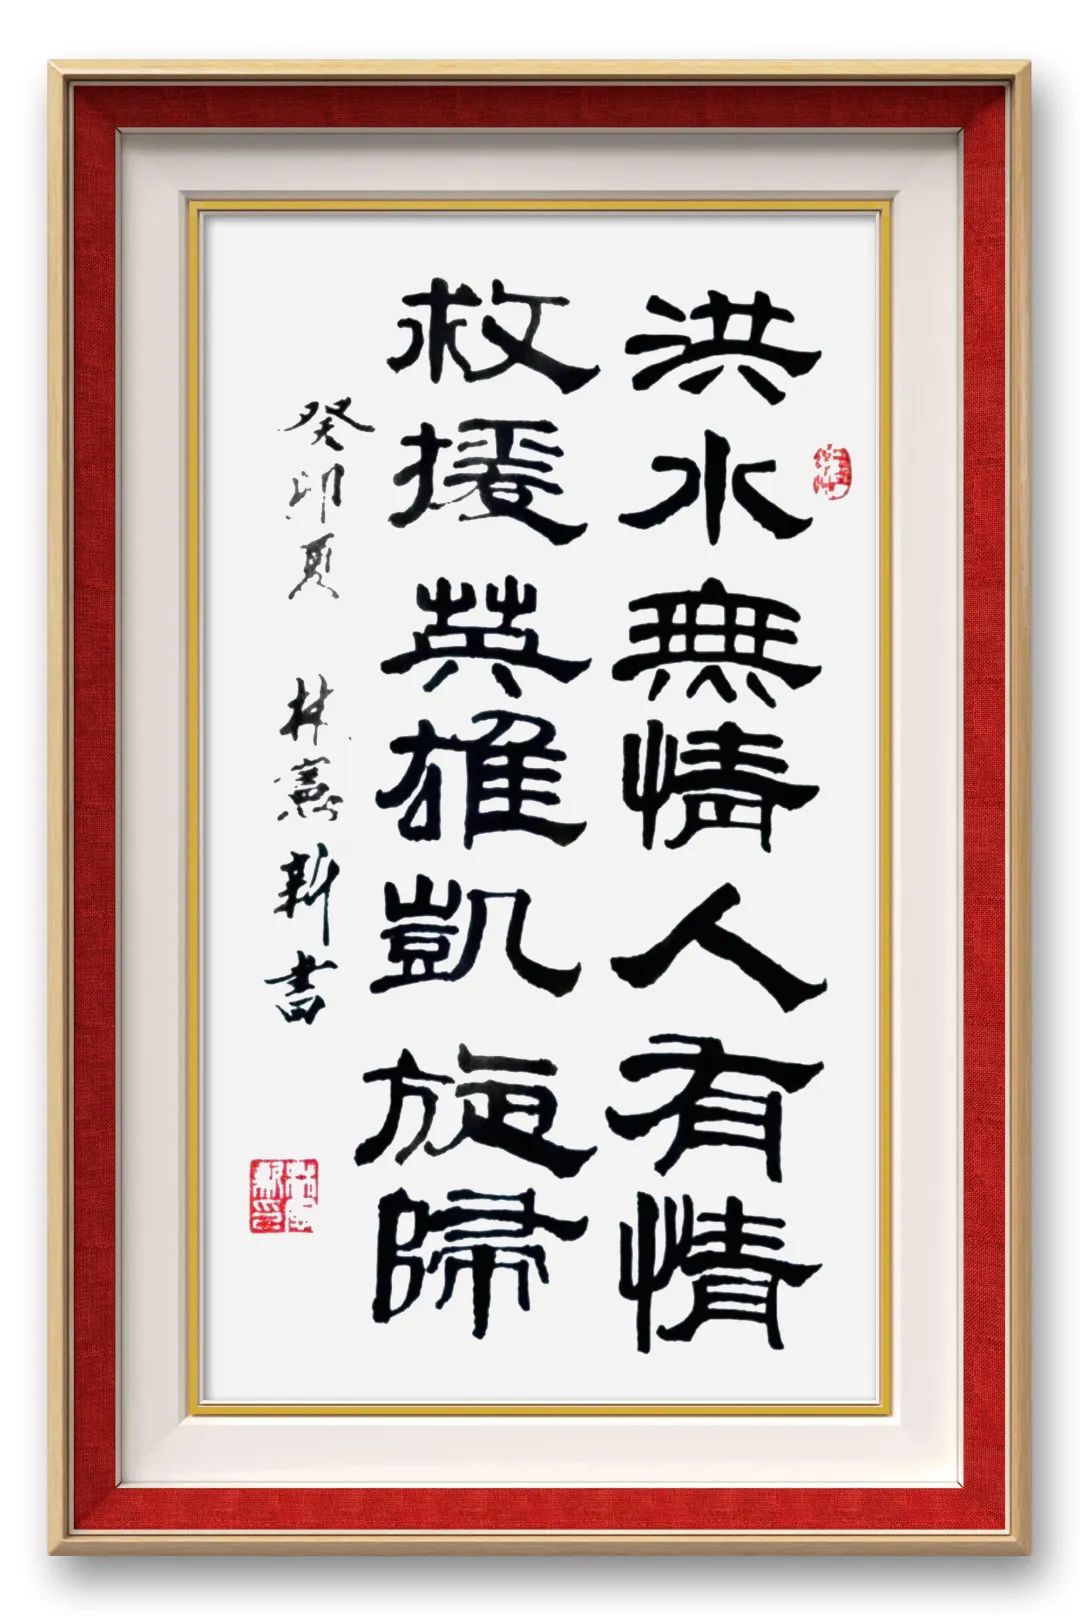 洪水無情人有情
救援英雄凱旋歸
癸卯夏 林憲新書